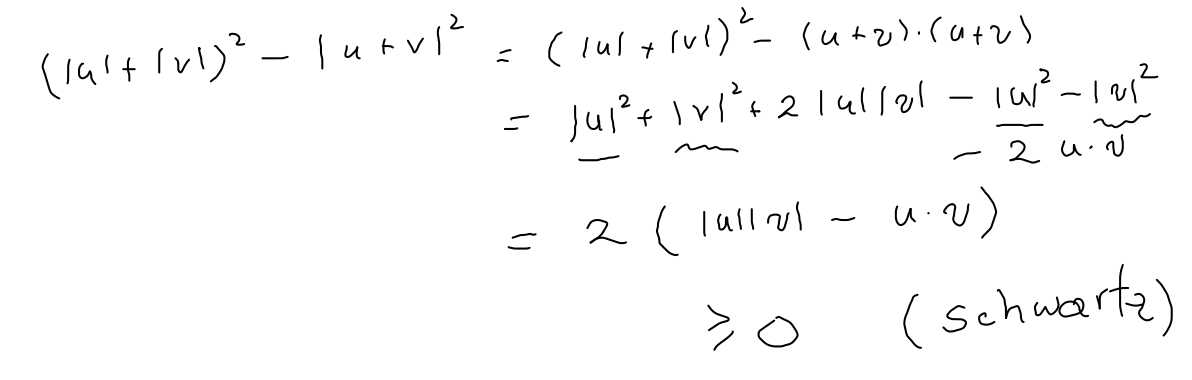 (|u| + |v|)² - |u + v|² = (|u| + |v|)² - (u + v)·(u + v)
= |u|² + |v|² + 2|u||v| - |u|² - |v|²
- 2 u·v
= 2 (|u||v| - u·v)
≥ 0 (schwartz)